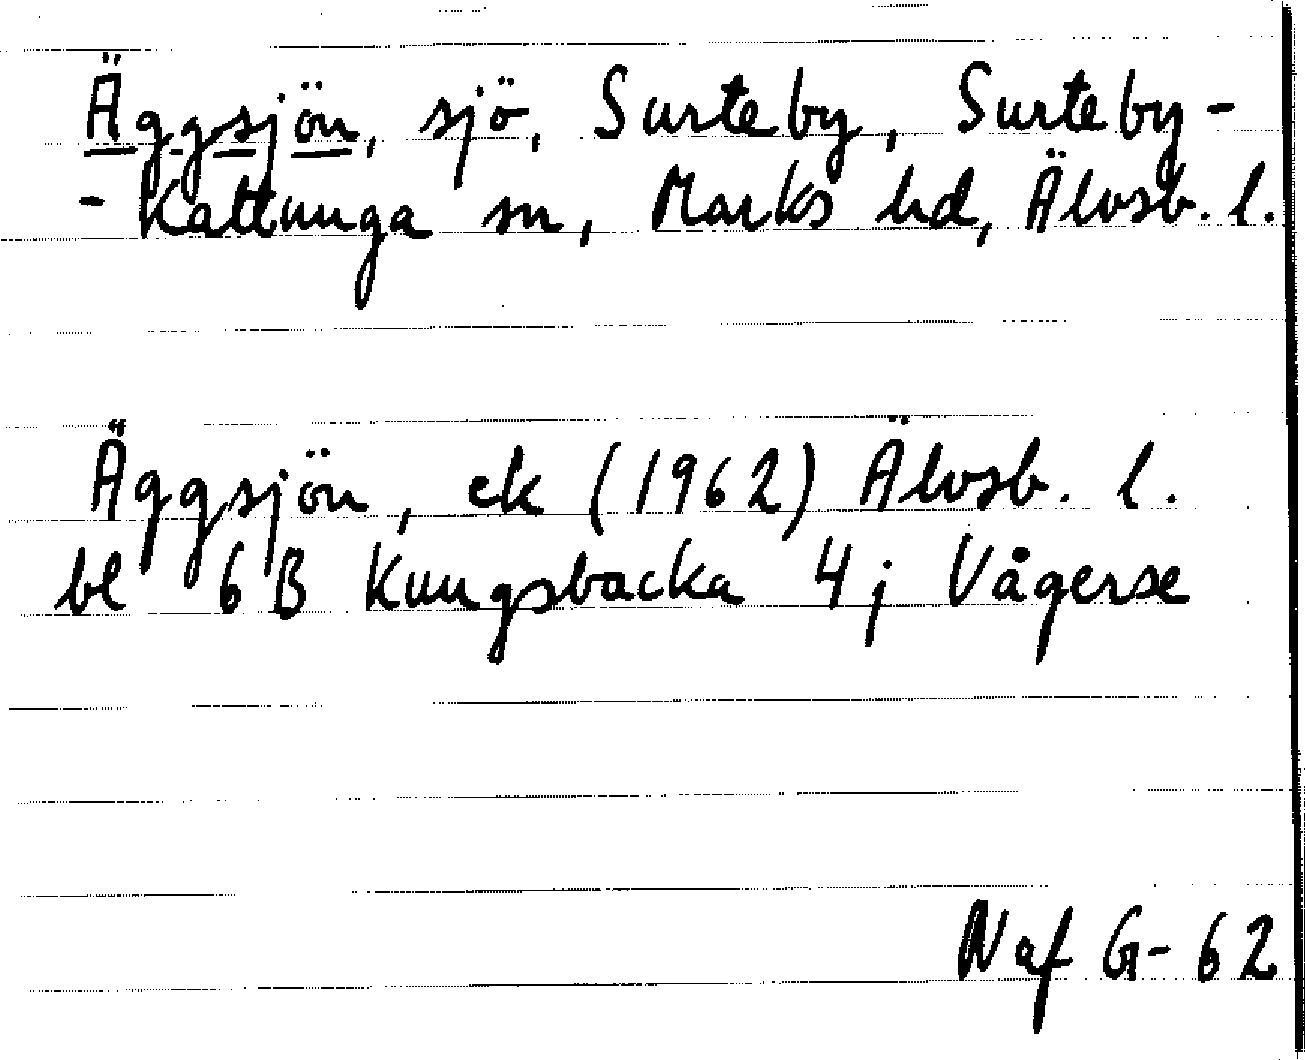 Äggsjön, sjö, Surteby, Surteby-
- Kattunga sn, Marks hd, Älvsb. l.
Äggsjön, ek (1962) Älvsb. l.
bl 6 B Kungsbacka 4 j Vågerse
Naf G-62